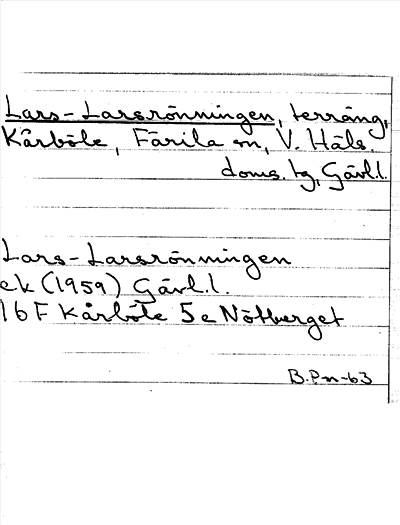 Lars-Larsrönningen, terräng,
Kårböle, Färila sn, V. Häls.
doms. tg, Gävl.l.
Lars-Larsrönningen
ek (1959) Gävl.l.
16 F Kårböle 5e Nötberget
B.Pn-63